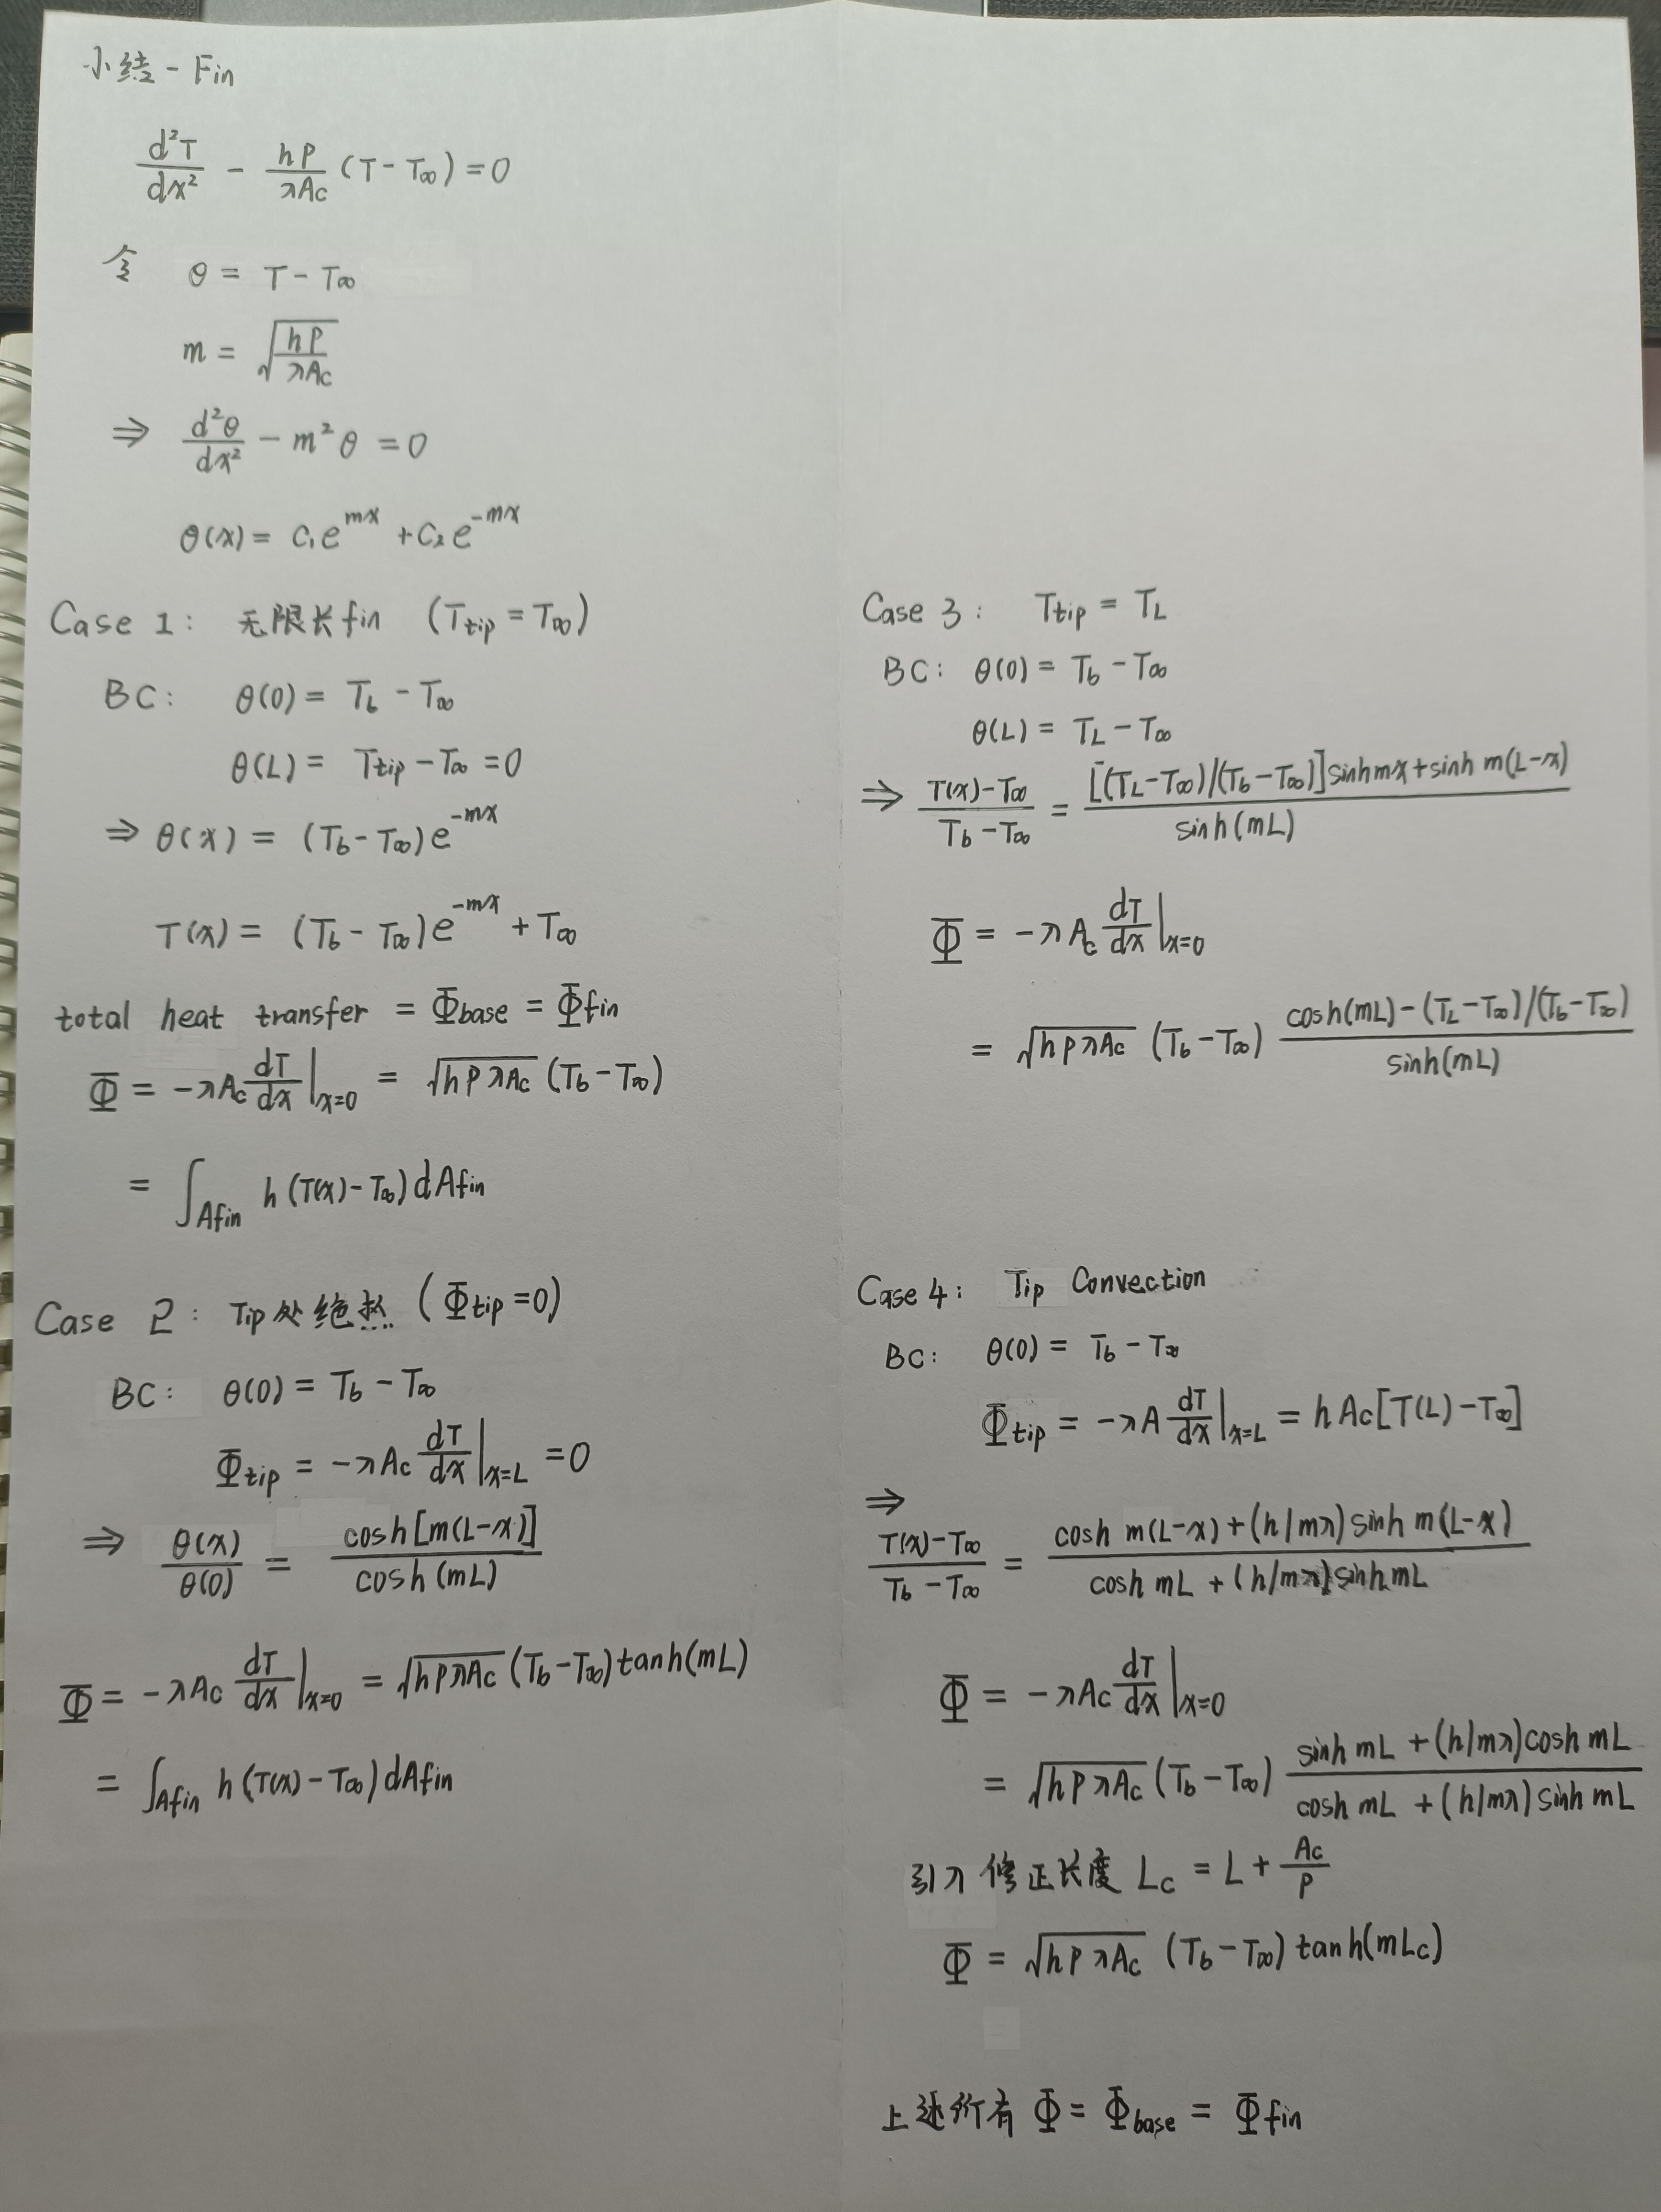 小结 - Fin
d²T/dx² - hP/λAc (T - T∞) = 0
令 θ = T - T∞
m = √(hP/λAc)
⇒ d²θ/dx² - m²θ = 0
θ(x) = C₁e^mx + C₂e^-mx
Case 1: 无限长fin (Ttip = T∞)
BC: θ(0) = Tb - T∞
θ(L) = Ttip - T∞ = 0
⇒ θ(x) = (Tb - T∞)e^-mx
T(x) = (Tb - T∞)e^-mx + T∞
total heat transfer = Φbase = Φfin
Φ = -λAc dT/dx |x=0 = √hPλAc (Tb - T∞)
= ∫Afin h(T(x) - T∞) dAfin
Case 2: Tip处绝热 (Φtip = 0)
BC: θ(0) = Tb - T∞
Φtip = -λAc dT/dx |x=L = 0
⇒ θ(x)/θ(0) = cosh[m(L-x)]/cosh(mL)
Φ = -λAc dT/dx |x=0 = √hPλAc (Tb - T∞) tanh(mL)
= ∫Afin h(T(x) - T∞) dAfin
Case 3: Ttip = TL
BC: θ(0) = Tb - T∞
θ(L) = TL - T∞
⇒ T(x)-T∞/Tb-T∞ = [(TL-T∞)/(Tb-T∞)]sinh mx + sinh m(L-x)/sinh(mL)
Φ = -λAc dT/dx |x=0
= √hPλAc (Tb - T∞) cosh(mL) - (TL-T∞)/(Tb-T∞)/sinh(mL)
Case 4: Tip Convection
BC: θ(0) = Tb - T∞
Φtip = -λA dT/dx |x=L = hAc[T(L) - T∞]
⇒
T(x)-T∞/Tb-T∞ = cosh m(L-x) + (h/mλ) sinh m(L-x)/cosh mL + (h/mλ) sinh mL
Φ = -λAc dT/dx |x=0
= √hPλAc (Tb - T∞) sinh mL + (h/mλ) cosh mL/cosh mL + (h/mλ) sinh mL
引入修正长度 Lc = L + Ac/P
Φ = √hPλAc (Tb - T∞) tanh(mLc)
上述所有 Φ = Φbase = Φfin